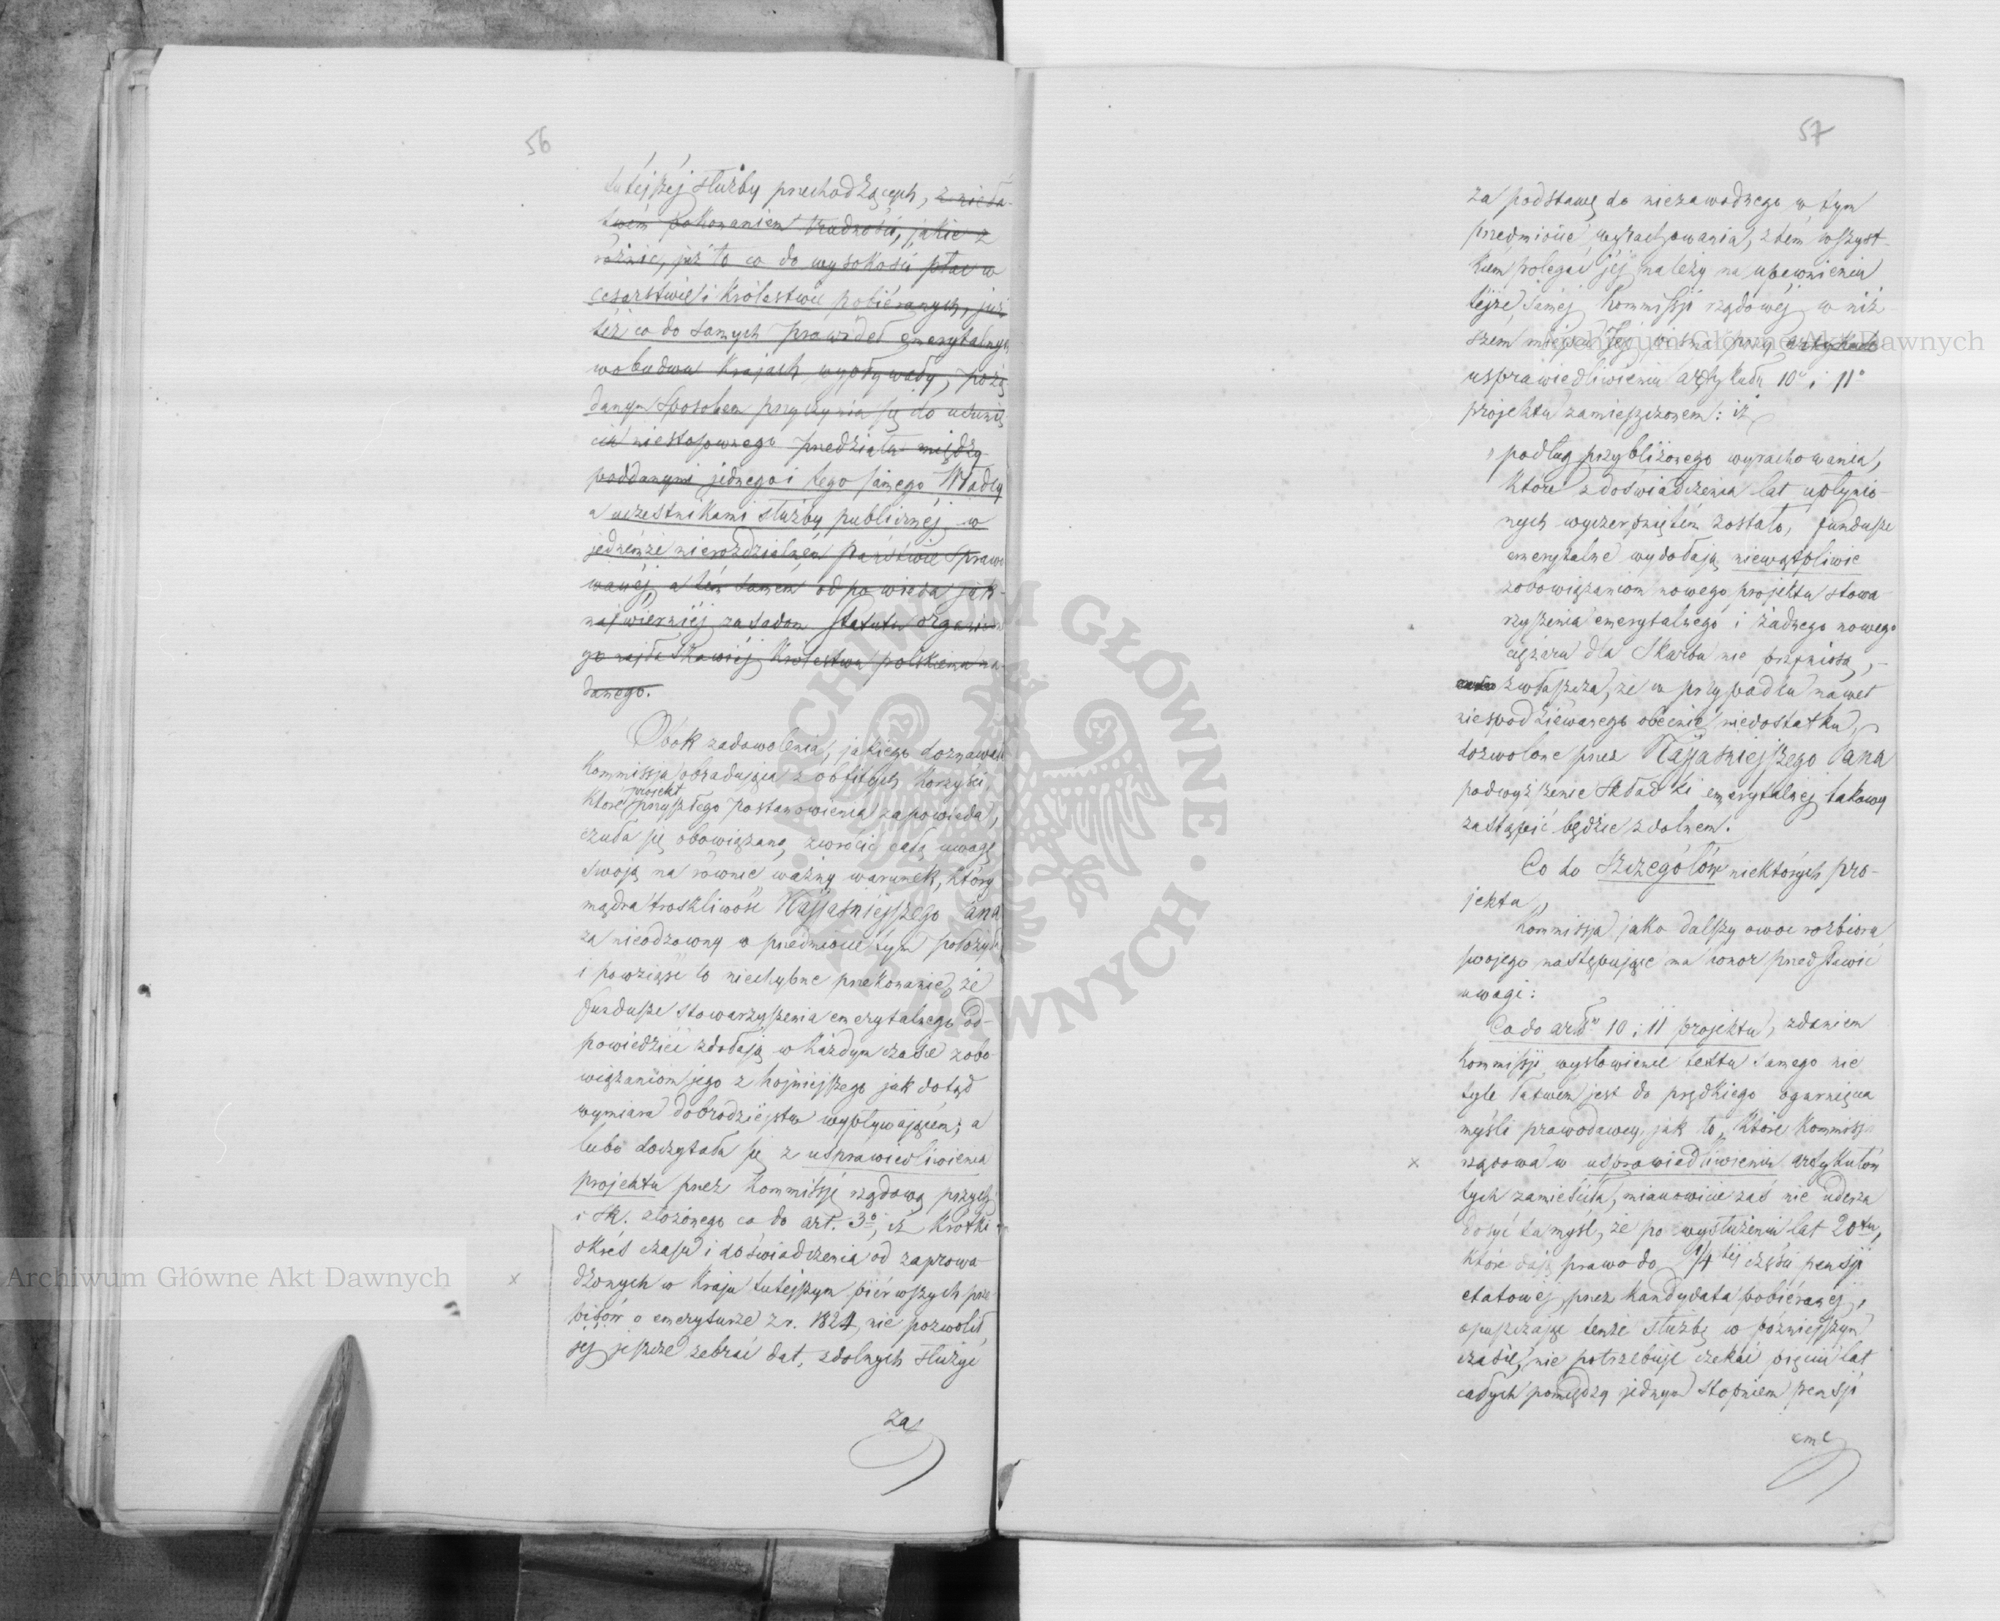 56
tutéjszéj służby przechodzących, z nieła-
twém pokonaniem trudności, jakie z
różnic, już to co do wysokości płac w
Cesarstwie i Królestwie pobiéranych, już
téż co do samych prawideł emerytalnych
w obudwu Krajach wypływały, pożą
danym sposobem przyczynia się do usunię
cia niestosownego przedziału między
poddanymi jednego i tego samego Władcy
a uczestnikami służby publicznéj w
jednémże nierozdzielném państwie sprawo
wanéj, a tém samém odpowiada jak-
najwierniéj zasadom statutu organiczne
go najłaskawiéj Królestwu polskiemu na
danego.
Obok zadowolenia, jakiego doznawała
Kommissja obradująca z obfitych korzyści,
które projekt przyszłego postanowienia zapowiada,
czuła się obowiązaną zwrócić całą uwagę
swoją na równie ważny warunek, który
mądra troskliwość Najjaśniejszego Pana
za nieodzowny w przedmiocie tym położyła
i powziąść to niechybne przekonanie, że
fundusze stowarzyszenia emerytalnego od-
powiedzieć zdołają w każdym czasie zobo
wiązaniom jego z hojniejszego jak dotąd
wymiaru dobrodziejstw wypływającém; a
lubo doczytała się z usprawiedliwienia
projektu przez Kommissję rządową przych
i Sk. złożonego co do art. 3º, iż krótki
okrés czasu i doświadczenia od zaprowa-
dzonych w Kraju tutejszym piérwszych prze
pisów o emeryturze z r. 1824, nie pozwolił
jéj jeszcze zebrać dat, zdolnych służyć
za
57
za podstawę do niezawodnego w tym
przedmiocie wyrachowania, z tém wszyst-
kiém polegać jéj należy na upewnieniu
téjże saméj Kommissji rządowéj w niż-
szém miejscu Jéj pisma przy artykule
usprawiedliwieniu artykułu 10º i 11º
projektu zamieszczoném: iż
„podług przybliżonego wyrachowania,
które z doświadczenia lat upłynio-
nych wyczerpniętém zostało, fundusze
emerytalne wydołają niewątpliwie
zobowiązaniom nowego projektu stowa-
rzyszenia emerytalnego i żadnego nowego
ciężaru dla Skarbu nie przyniosą, —
zwłaszcza, że w przypadku nawet
niespodziéwanego obecnie niedostatku,
dozwolone przez Najjaśniejszego Pana
podwyższenie składki emerytalnéj takowy
zastąpić będzie zdolném.
Co do szczegółów niektórych pro-
jektu,
Kommissja, jako dalszy owoc rozbioru
swojego następujące ma honor przedstawić
uwagi:
Co do artłów 10 i 11 projektu, zdaniem
Kommissji, wysłowienie textu samego nie
tyle łatwém jest do prędkiego ogarnięcia
myśli prawodawcy, jak to, które Kommissja
x rządowa w usprawiedliwieniu artykułów
tych zamieściła, mianowicie zaś nie uderza
dosyć ta myśl, że po wysłużeniu lat 20tu,
które dają prawo do 1/4téj części pensji
etatowéj przez kandydata pobiéranéj,
opuszczając tenże służbę w późniejszym
czasie, nie potrzebuje czekać pięciu lat
całych pomiędzy jednym stopniem pensji
eme
x
Archiwum Główne Akt Dawnych
Archiwum Główne Akt Dawnych
ARCHIWUM GŁÓWNE • AKT DAWNYCH •